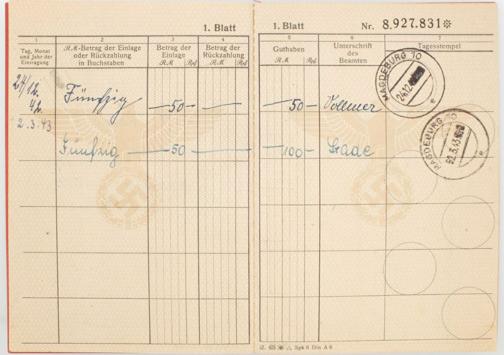 1. Blatt
1. Blatt Nr. 8.927.831*
1 2 3 4 5 6 7
Tag, Monat und Jahr der Eintragung
RM-Betrag der Einlage oder Rückzahlung in Buchstaben
Betrag der Einlage
RM Rpf
Betrag der Rückzahlung
RM Rpf
Guthaben
RM Rpf
Unterschrift des Beamten
Tagesstempel
24/12. 42. Fünfzig — 50 — — 50 — Vollmer
MAGDEBURG 10 24.12
2.3.43 Fünfzig — 50 — 100 —
MAGDEBURG 10
Din A 6